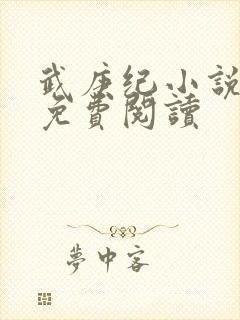 武庚纪小說
免費閱讀
夢中客